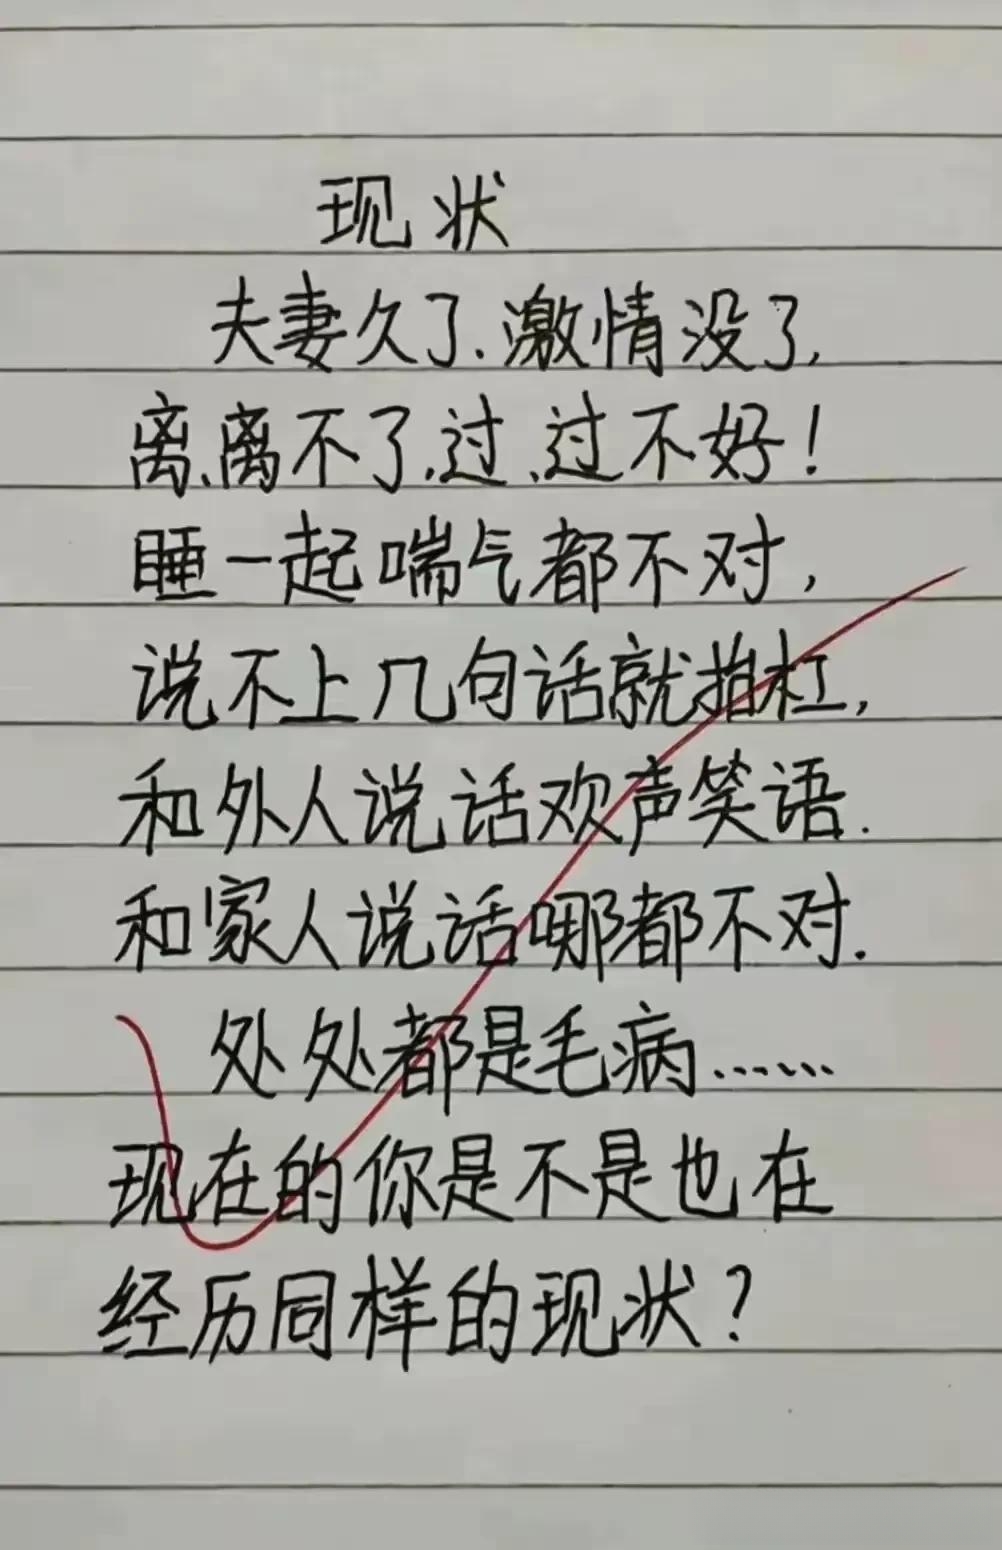 现状
夫妻久了、激情没了，
离、离不了，过、过不好！
睡一起喘气都不对，
说不上几句话就抬杠，
和外人说话欢声笑语.
和家人说话哪都不对.
处处都是毛病……
现在的你是不是也在
经历同样的现状？